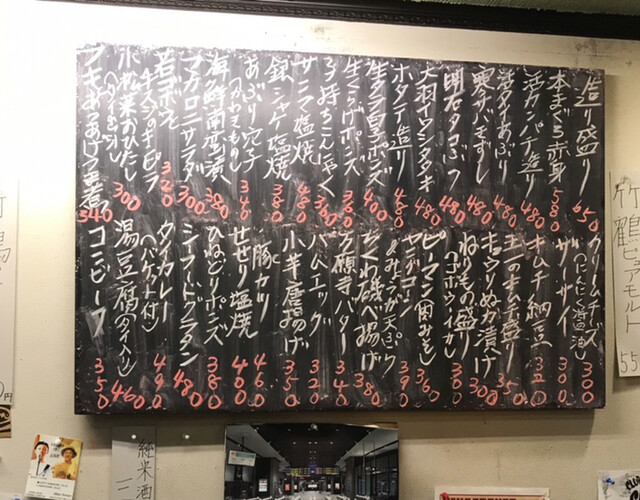 造り盛り 650
本まぐろ赤身 580
活カンパチ造り 480
活タコあぶり 480
雲サバきずし 480
明石タコぶつ 480
大羽イワシタタキ 480
ホタテ造り 480
生タラ白子ポンズ 400
生くらげポンズ 380
子持ちこんにゃく 300
サンマ塩焼 480
銀シャケ塩焼 380
あぶり穴子 340
海鮮南蛮漬
マカロニサラダ 300
若ゴボウ
牛スジのキンピラ 320
小松菜おひたし 300
フキあつあげ煮 340
クリームチーズ
(にんにく醤油) 300
ザーサイ 300
キムチ納豆 320
キムチ盛り 350
キュウリぬか漬け 300
ねりもの盛り
(ゴボウ、イカ) 300
ピーマン(肉みそ) 360
ヤングコーン
&みょうが天ぷら 390
ちくわ磯べ揚げ 380
万願寺バター 340
ハムエッグ 320
小芋唐揚げ 350
豚ヒレカツ 460
せせり塩焼 400
ひねどりポンズ 380
シーフードグラタン 480
タイカレー
(バケット付) 490
湯豆腐(タイトリ) 460
コンビーフ 350
竹鶴ピュアモルト
55
純米酒